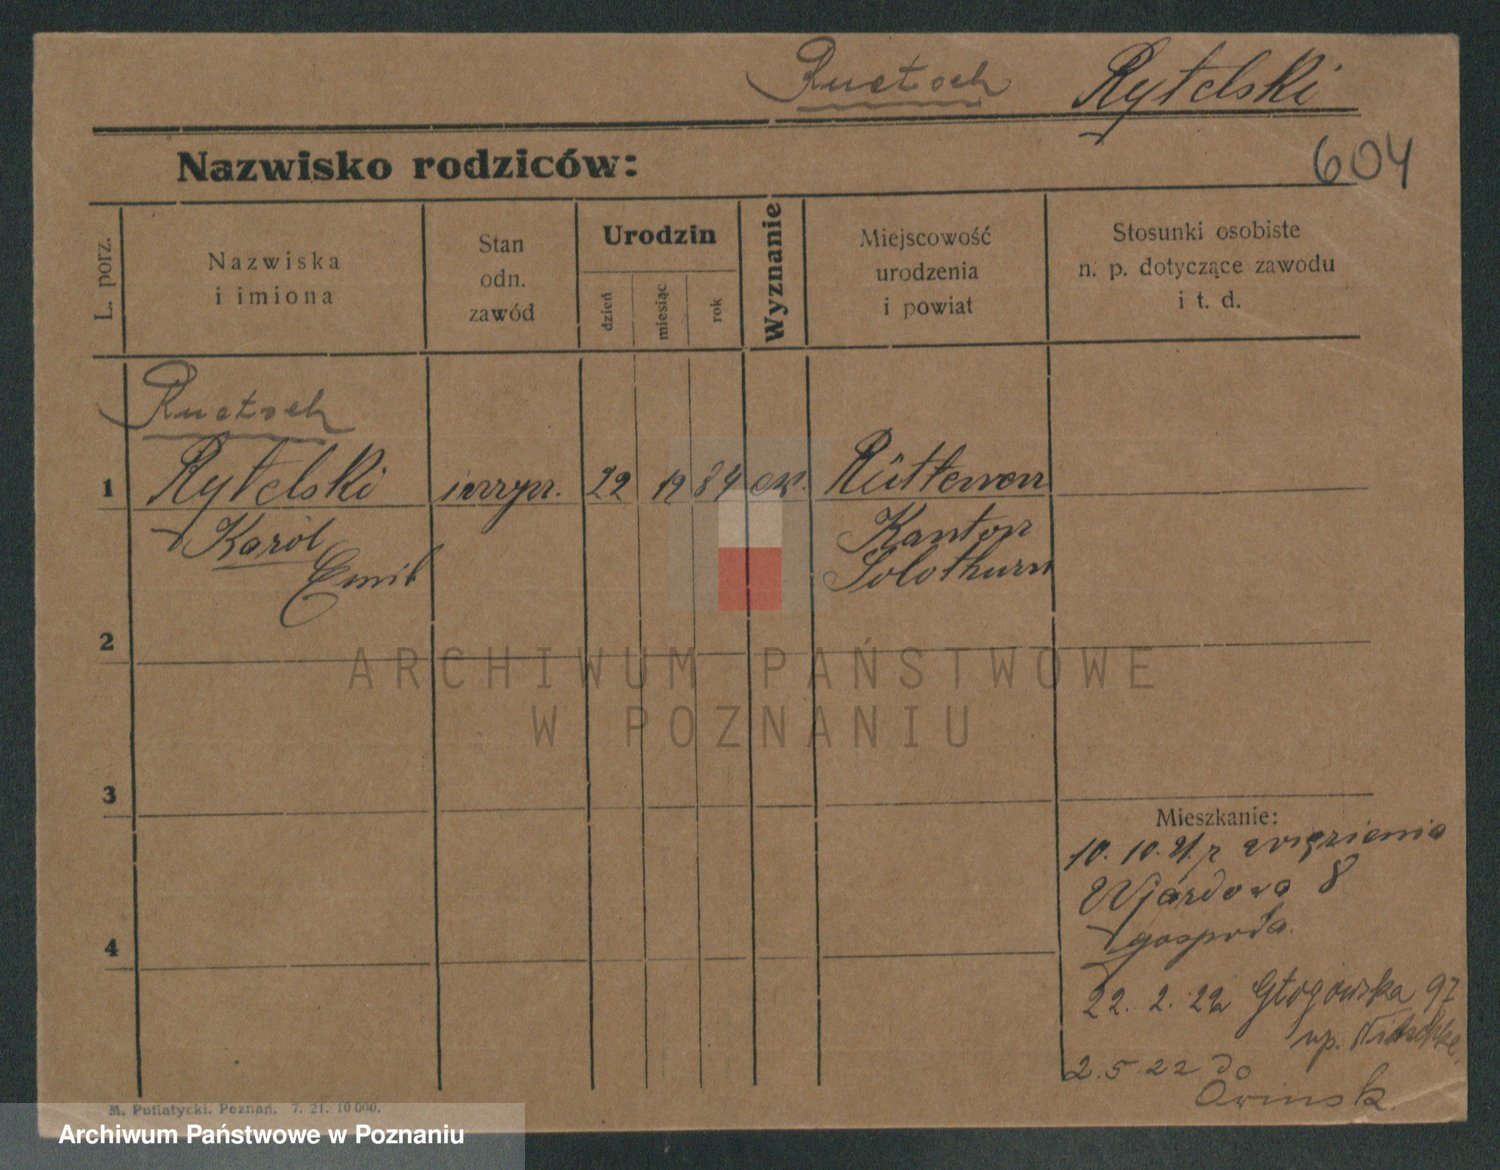 Ruetsch Rytelski
604
Nazwisko rodziców:
L. porz.
Nazwiska
i imiona
Stan
odn.
zawód
Urodzin
dzień
miesiąc
rok
Wyznanie
Miejscowość
urodzenia
i powiat
Stosunki osobiste
n. p. dotyczące zawodu
i t. d.
Ruetsch
1 Rytelski 22 12 84 ew.
Karól Kanton
Emil Solothurn
2
ARCHIWUM PAŃSTWOWE
W POZNANIU
3
Mieszkanie:
10. 10. 21. z więzienia
Wjazdowa 8
gospoda
4
22. 2. 22 Głogowska 97
np.
2. 5. 22 do
M. Putiatycki. Poznań. 7. 21. 10 000.
Archiwum Państwowe w Poznaniu